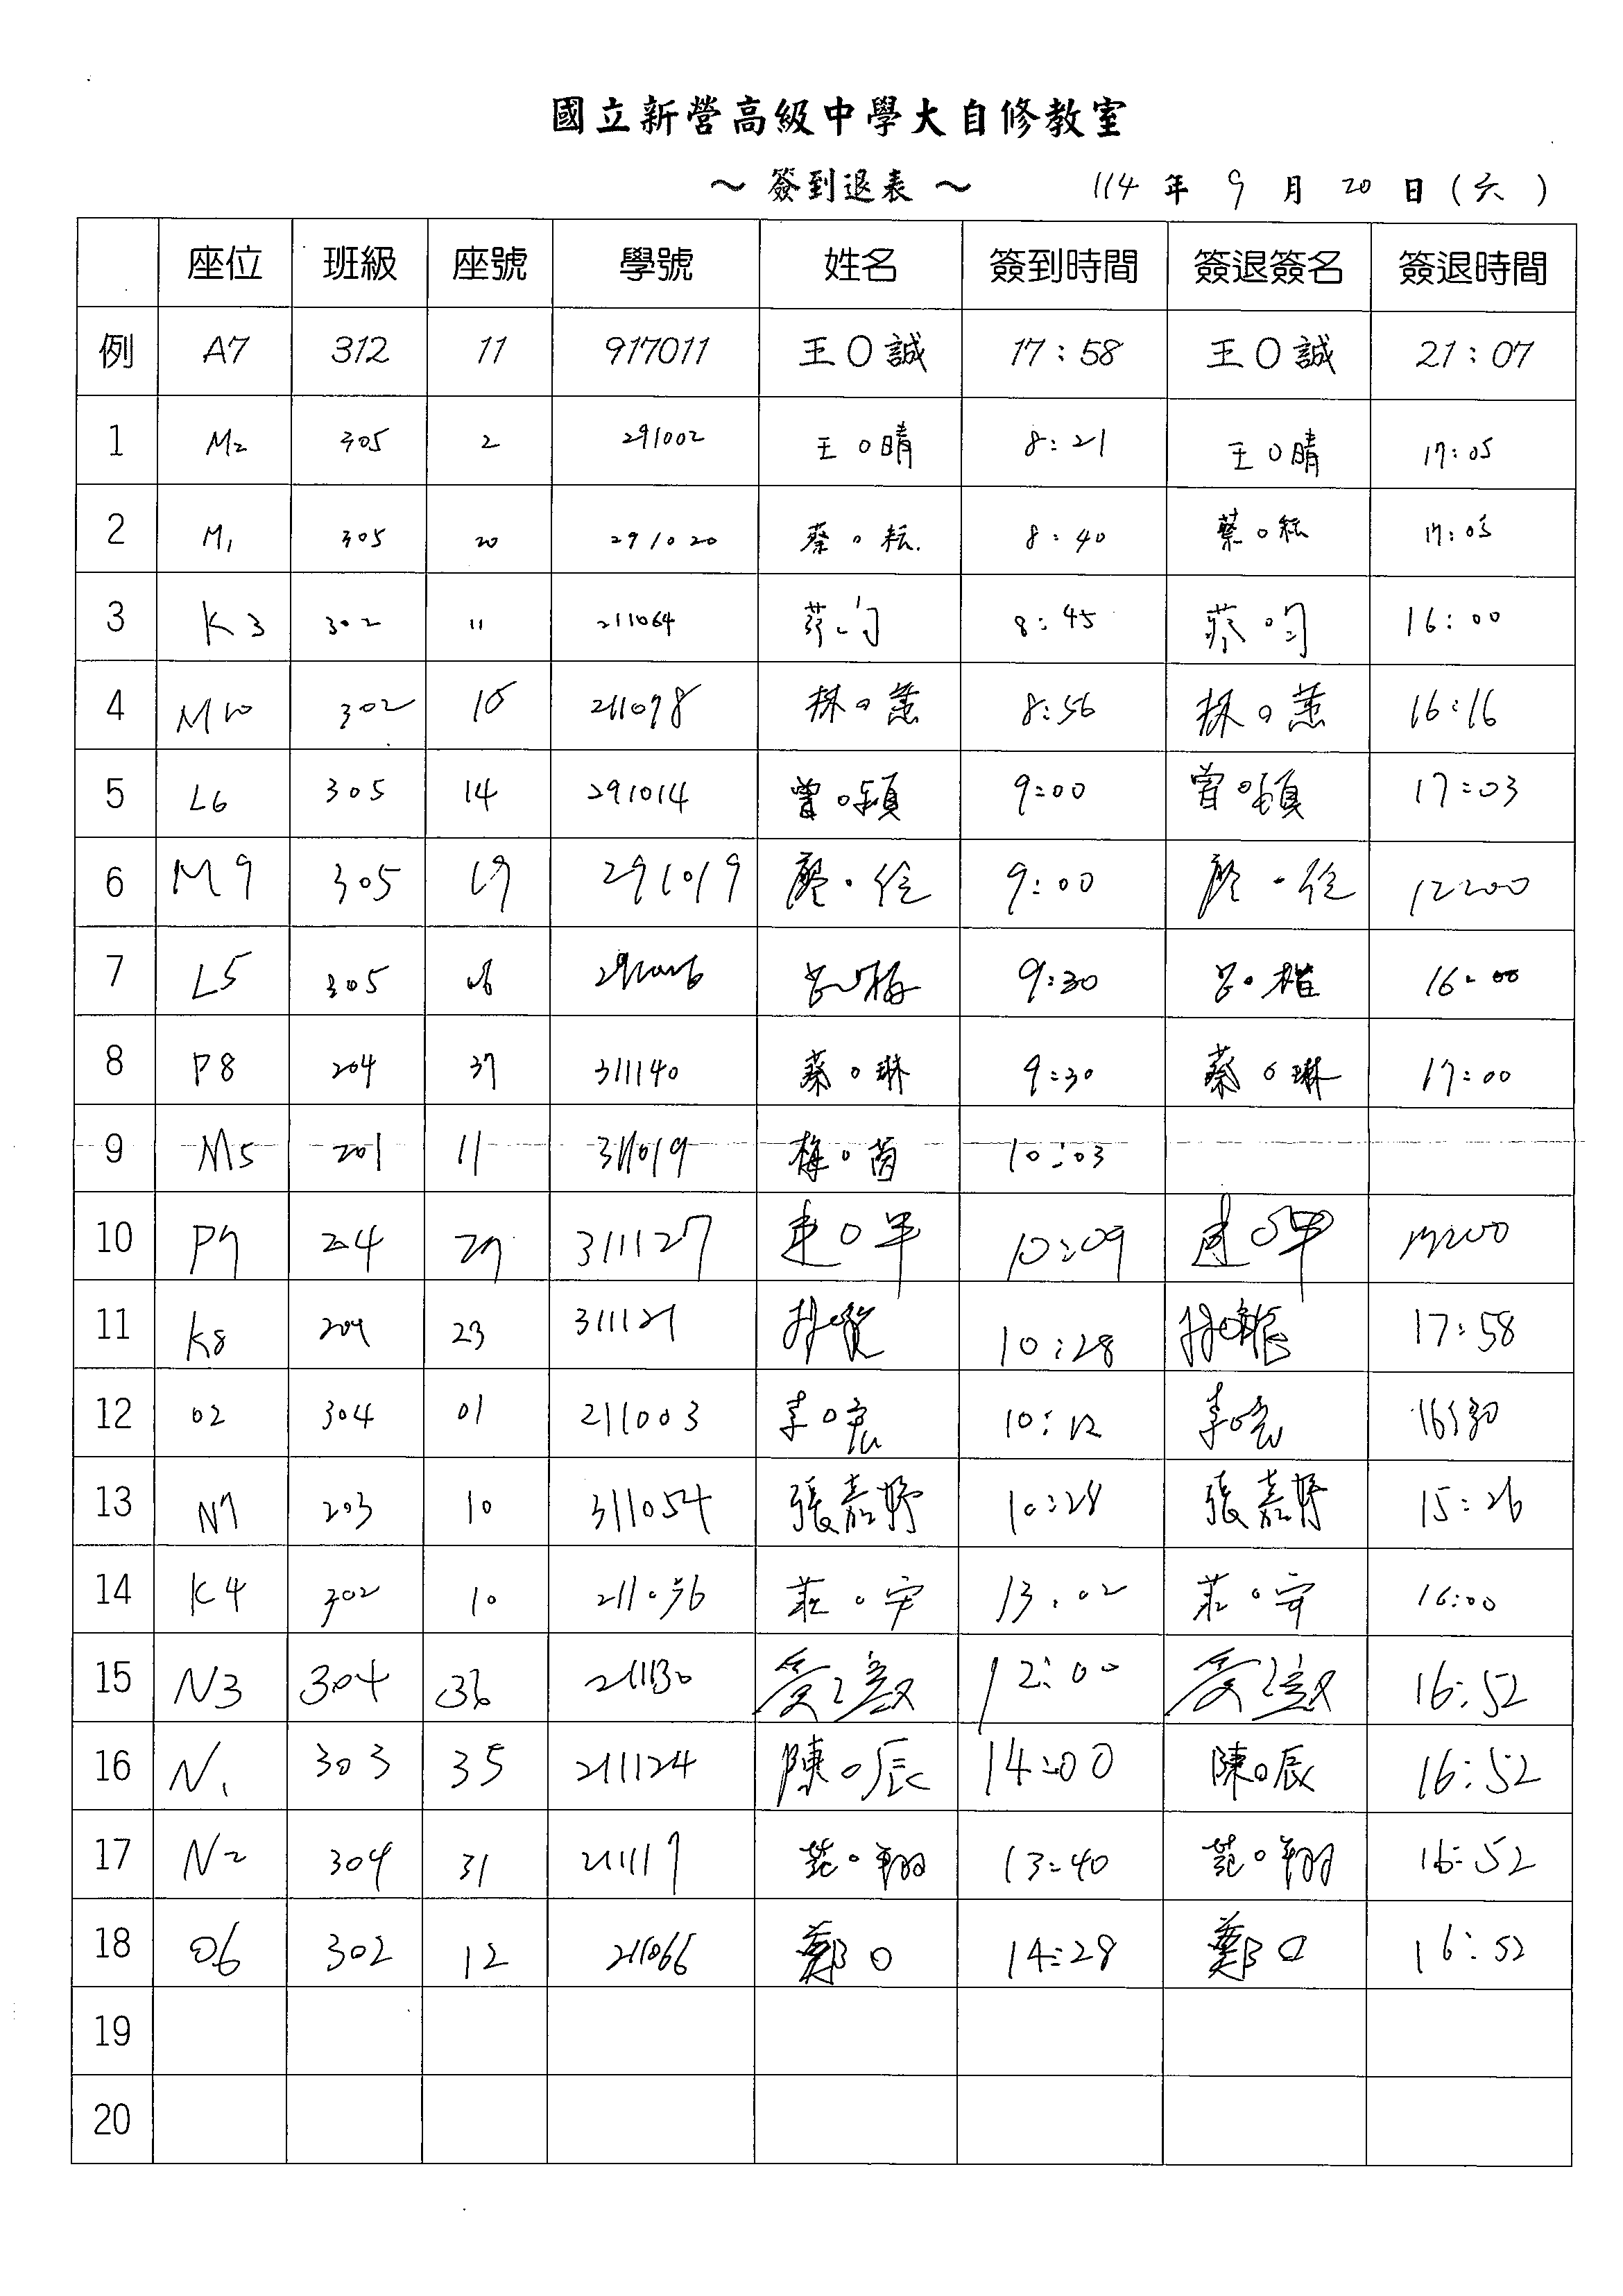 國立新營高級中學大自修教室
～ 簽到退表 ～ 114 年 9 月 20 日 (六)
座位 班級 座號 學號 姓名 簽到時間 簽退簽名 簽退時間
例 A7 312 11 917011 王〇誠 17:58 王〇誠 21:07
1 M2 305 2 291002 王〇晴 8:21 王〇晴 17:05
2 M1 305 20 291020 蔡〇耘 8:40 蔡〇耘 17:05
3 K3 302 11 211064 蔡〇勻 8:45 蔡〇勻 16:00
4 M10 302 211098 林〇薰 8:56 林〇薰 16:16
5 L6 305 14 291014 曾〇穎 9:00 曾〇穎 17:03
6 M9 305 19 291019 廖〇 9:00 廖〇 12:00
7 L5 305 呂〇 9:30 呂〇 16:00
8 P8 204 37 311140 蔡〇琳 9:30 蔡〇琳 17:00
9 M5 201 11 311019 梅〇茵 10:03
10 P9 204 29 311127 連〇 10:09 連〇
11 K8 204 23 311121 10:28 17:58
12 O2 304 01 211003 李〇宸 10:12 李〇 16:30
13 N7 203 10 311054 張嘉妤 10:28 張嘉妤 15:26
14 K4 302 10 莊〇安 13:02 莊〇安 16:00
15 N3 304 36 211130 12:00 16:52
16 N1 303 35 211124 陳〇辰 14:00 陳〇辰 16:52
17 N2 304 31 211117 范〇翔 13:40 范〇翔 16:52
18 O6 302 12 211066 鄭〇 14:28 鄭〇 16:52
19
20